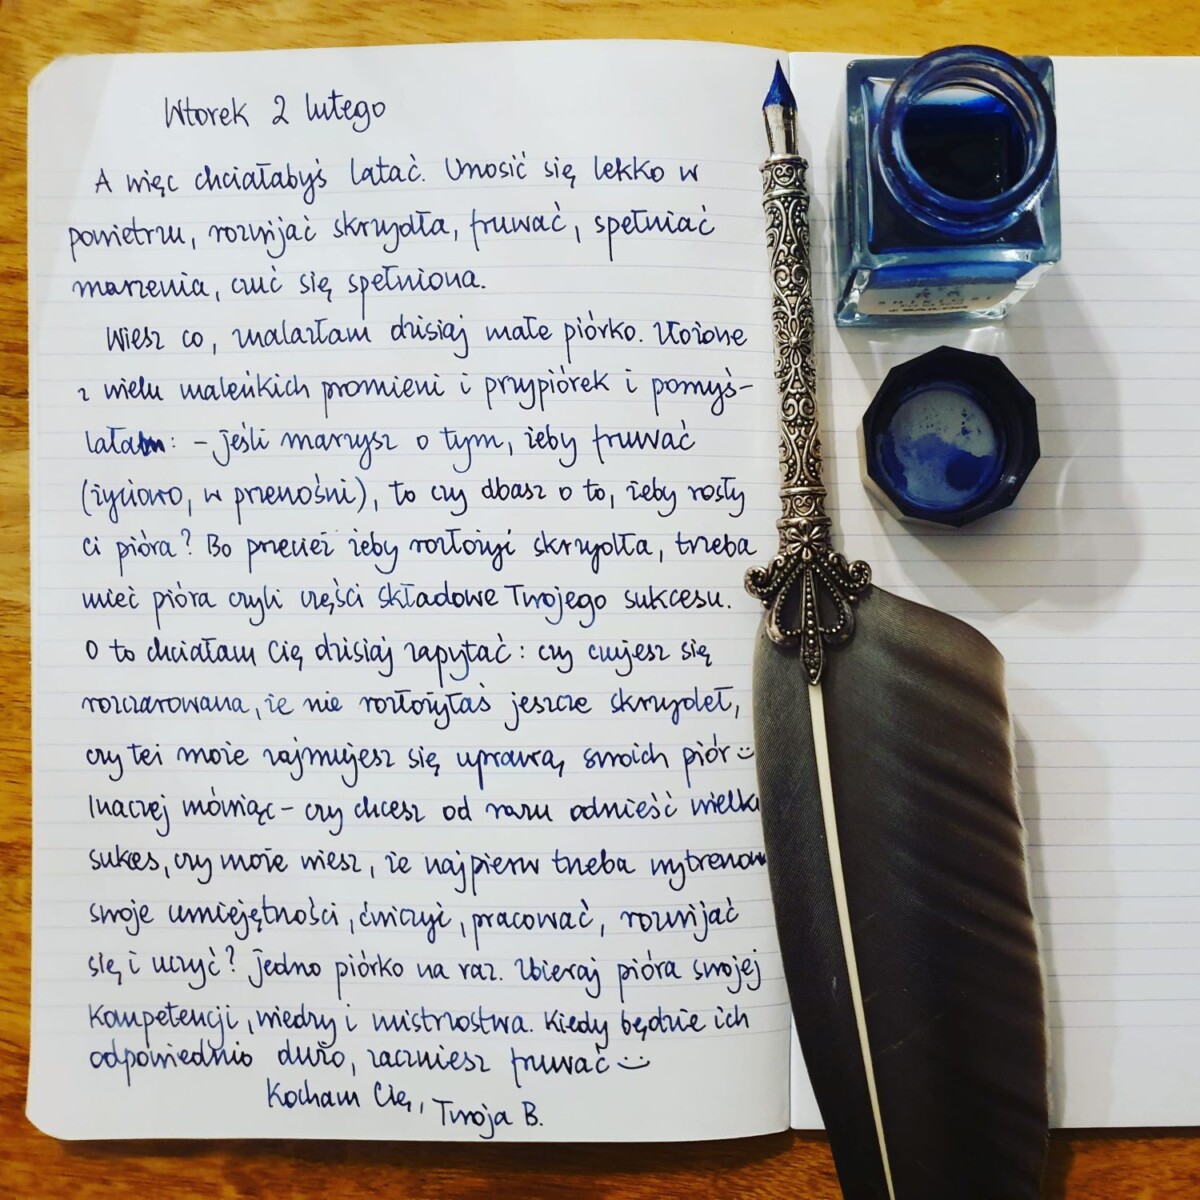 Wtorek 2 lutego
A więc chciałabyś latać. Unosić się lekko w
powietrzu, rozwijać skrzydła, fruwać, spełniać
marzenia, czuć się spełniona.
Wiesz co, znalazłam dzisiaj małe piórko. Złożone
z wielu maleńkich promieni i przypiórek i pomyś-
lałam: - jeśli marzysz o tym, żeby fruwać
(życiowo, w przenośni), to czy dbasz o to, żeby rosły
Ci pióra? Bo przecież żeby rozłożyć skrzydła, trzeba
mieć pióra czyli części składowe Twojego sukcesu.
O to chciałam Cię dzisiaj zapytać: czy czujesz się
rozczarowana, że nie rozłożyłaś jeszcze skrzydeł,
czy też może zajmujesz się uprawą swoich piór
Inaczej mówiąc - czy chcesz od razu odnieść wielki
sukces, czy może wiesz, że najpierw trzeba
swoje umiejętności, ćwiczyć, pracować, rozwijać
się i uczyć? Jedno piórko na raz. Zbieraj pióra swojej
kompetencji, wiedzy i mistrzostwa. Kiedy będzie ich
odpowiednio dużo, zaczniesz fruwać
Kocham Cię, Twoja B.